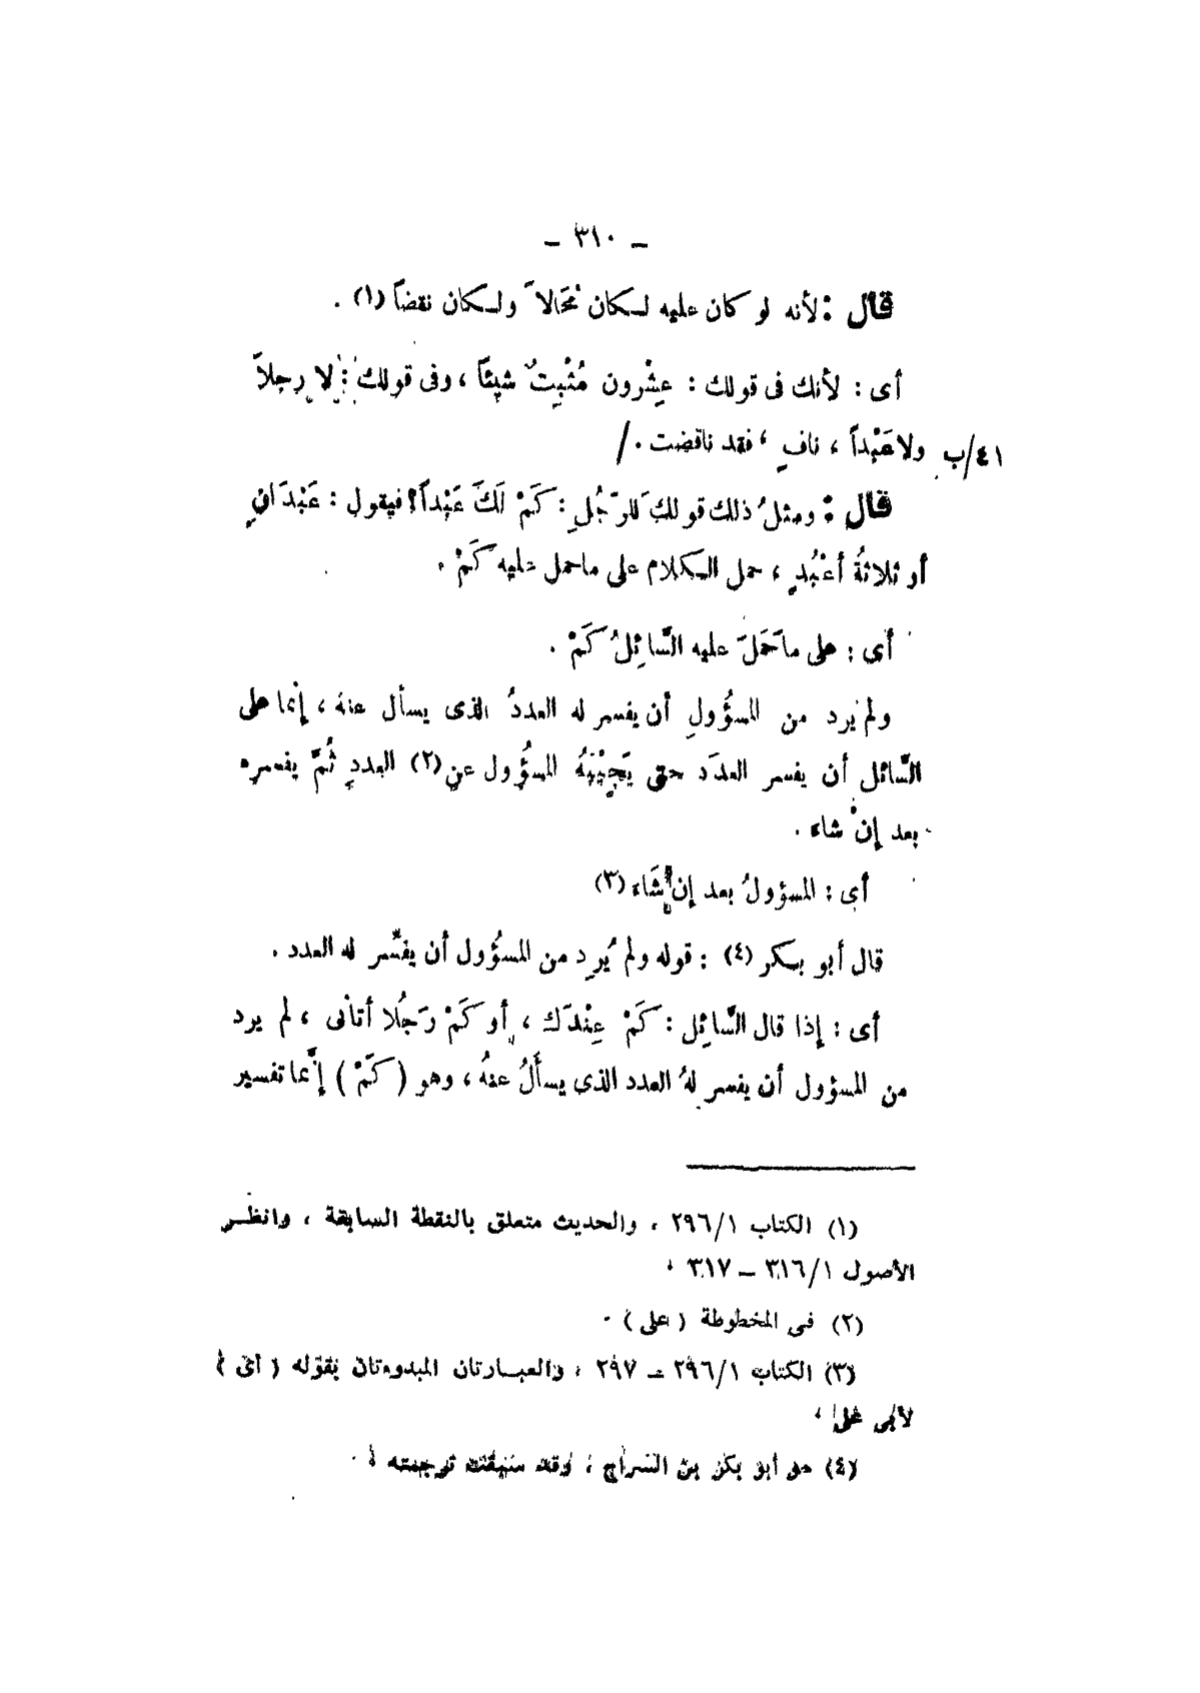 – ٣١٠ –
قال : لأنه لو كان عليه لكان مُحَالاً ولكان نقضاً (١) .
أى : لأنك فى قولك : عِشْرون مُثْبِتٌ شيئاً ، وفى قولك : لا رجلاً
ولا عَبْداً ، نافٍ ، فقد ناقضت . / ٤١/ب
قال : ومثلُ ذلك قولكَ للرّجُلِ : كَمْ لَكَ عَبْداً؟ فيقول : عَبْدَانِ
أو ثلاثةُ أعْبُدٍ ، حمل الكلام على ماحمل عليه كَمْ .
أى : على ماحَمَلَ عليه السَّائِلُ كَمْ .
ولم يرد من المسؤُولِ أن يفسر له العددُ الذى يسأل عنه ، إنما على
السَّائل أن يفسر العددَ حتى يَجِيْبَهُ المسؤُول عنِ (٢) العددِ ثُمَّ يفسره
بعد إنْ شاء .
أى : المسؤولُ بعد إن شَاء (٣)
قال أبو بكر (٤) : قوله ولم يُرِد من المسؤُول أن يفسّر له العدد .
أى : إذا قال السَّائِل : كَمْ عِنْدَك ، أو كَمْ رَجُلا أتانى ، لم يرد
من المسؤول أن يفسر لهُ العدد الذى يسأَلُ عنهُ ، وهو ( كَمْ ) إنَّما تفسير
(١) الكتاب ٢٩٦/١ ، والحديث متعلق بالنقطة السابقة ، وانظر
الأصول ٣١٦/١ – ٣١٧ .
(٢) فى المخطوطة ( على ) .
(٣) الكتاب ٢٩٦/١ – ٢٩٧ ، والعبارتان المبدوءتان بقوله ( أى )
لأبى على .
(٤) هو أبو بكر بن السراج ، وقد سبقت ترجمته .